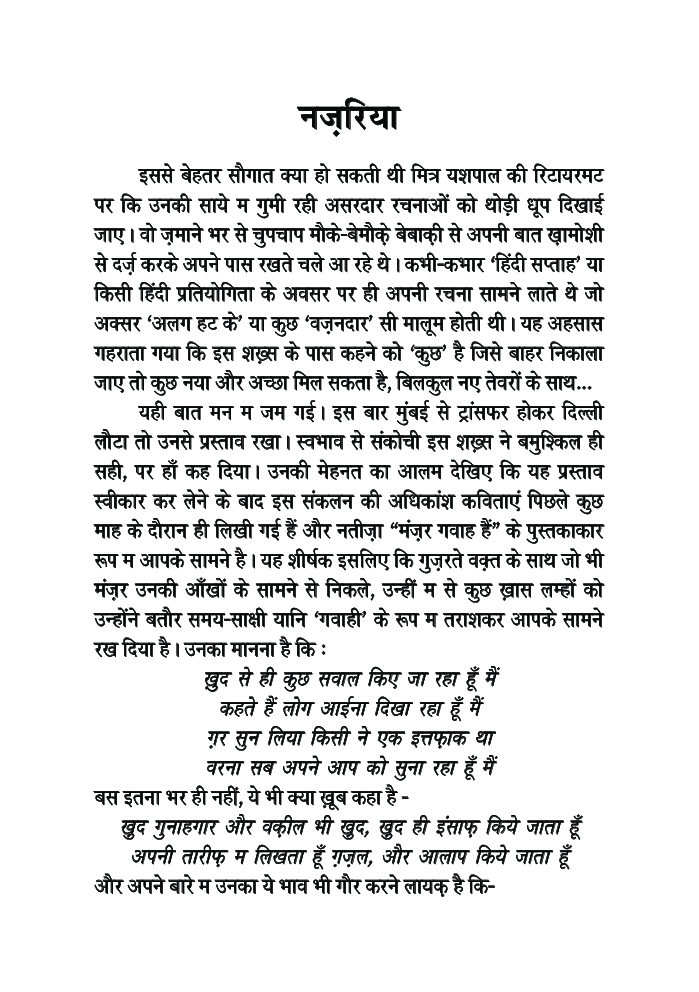 नज़रिया
इससे बेहतर सौगात क्या हो सकती थी मित्र यशपाल की रिटायरमट
पर कि उनकी साये म गुमी रही असरदार रचनाओं को थोड़ी धूप दिखाई
जाए। वो ज़माने भर से चुपचाप मौके-बेमौक़े बेबाक़ी से अपनी बात ख़ामोशी
से दर्ज़ करके अपने पास रखते चले आ रहे थे। कभी-कभार ‘हिंदी सप्ताह’ या
किसी हिंदी प्रतियोगिता के अवसर पर ही अपनी रचना सामने लाते थे जो
अक्सर ‘अलग हट के’ या कुछ ‘वज़नदार’ सी मालूम होती थी। यह अहसास
गहराता गया कि इस शख़्स के पास कहने को ‘कुछ’ है जिसे बाहर निकाला
जाए तो कुछ नया और अच्छा मिल सकता है, बिलकुल नए तेवरों के साथ...
यही बात मन म जम गई। इस बार मुंबई से ट्रांसफर होकर दिल्ली
लौटा तो उनसे प्रस्ताव रखा। स्वभाव से संकोची इस शख़्स ने बमुश्किल ही
सही, पर हाँ कह दिया। उनकी मेहनत का आलम देखिए कि यह प्रस्ताव
स्वीकार कर लेने के बाद इस संकलन की अधिकांश कविताएं पिछले कुछ
माह के दौरान ही लिखी गई हैं और नतीज़ा “मंज़र गवाह हैं” के पुस्तकाकार
रूप म आपके सामने है। यह शीर्षक इसलिए कि गुज़रते वक़्त के साथ जो भी
मंज़र उनकी आँखों के सामने से निकले, उन्हीं म से कुछ ख़ास लम्हों को
उन्होंने बतौर समय-साक्षी यानि ‘गवाही’ के रूप म तराशकर आपके सामने
रख दिया है। उनका मानना है कि :
ख़ुद से ही कुछ सवाल किए जा रहा हूँ मैं
कहते हैं लोग आईना दिखा रहा हूँ मैं
ग़र सुन लिया किसी ने एक इत्तफ़ाक था
वरना सब अपने आप को सुना रहा हूँ मैं
बस इतना भर ही नहीं, ये भी क्या ख़ूब कहा है -
ख़ुद गुनाहगार और वक़ील भी ख़ुद, ख़ुद ही इंसाफ़ किये जाता हूँ
अपनी तारीफ़ म लिखता हूँ ग़ज़ल, और आलाप किये जाता हूँ
और अपने बारे म उनका ये भाव भी गौर करने लायक़ है कि-